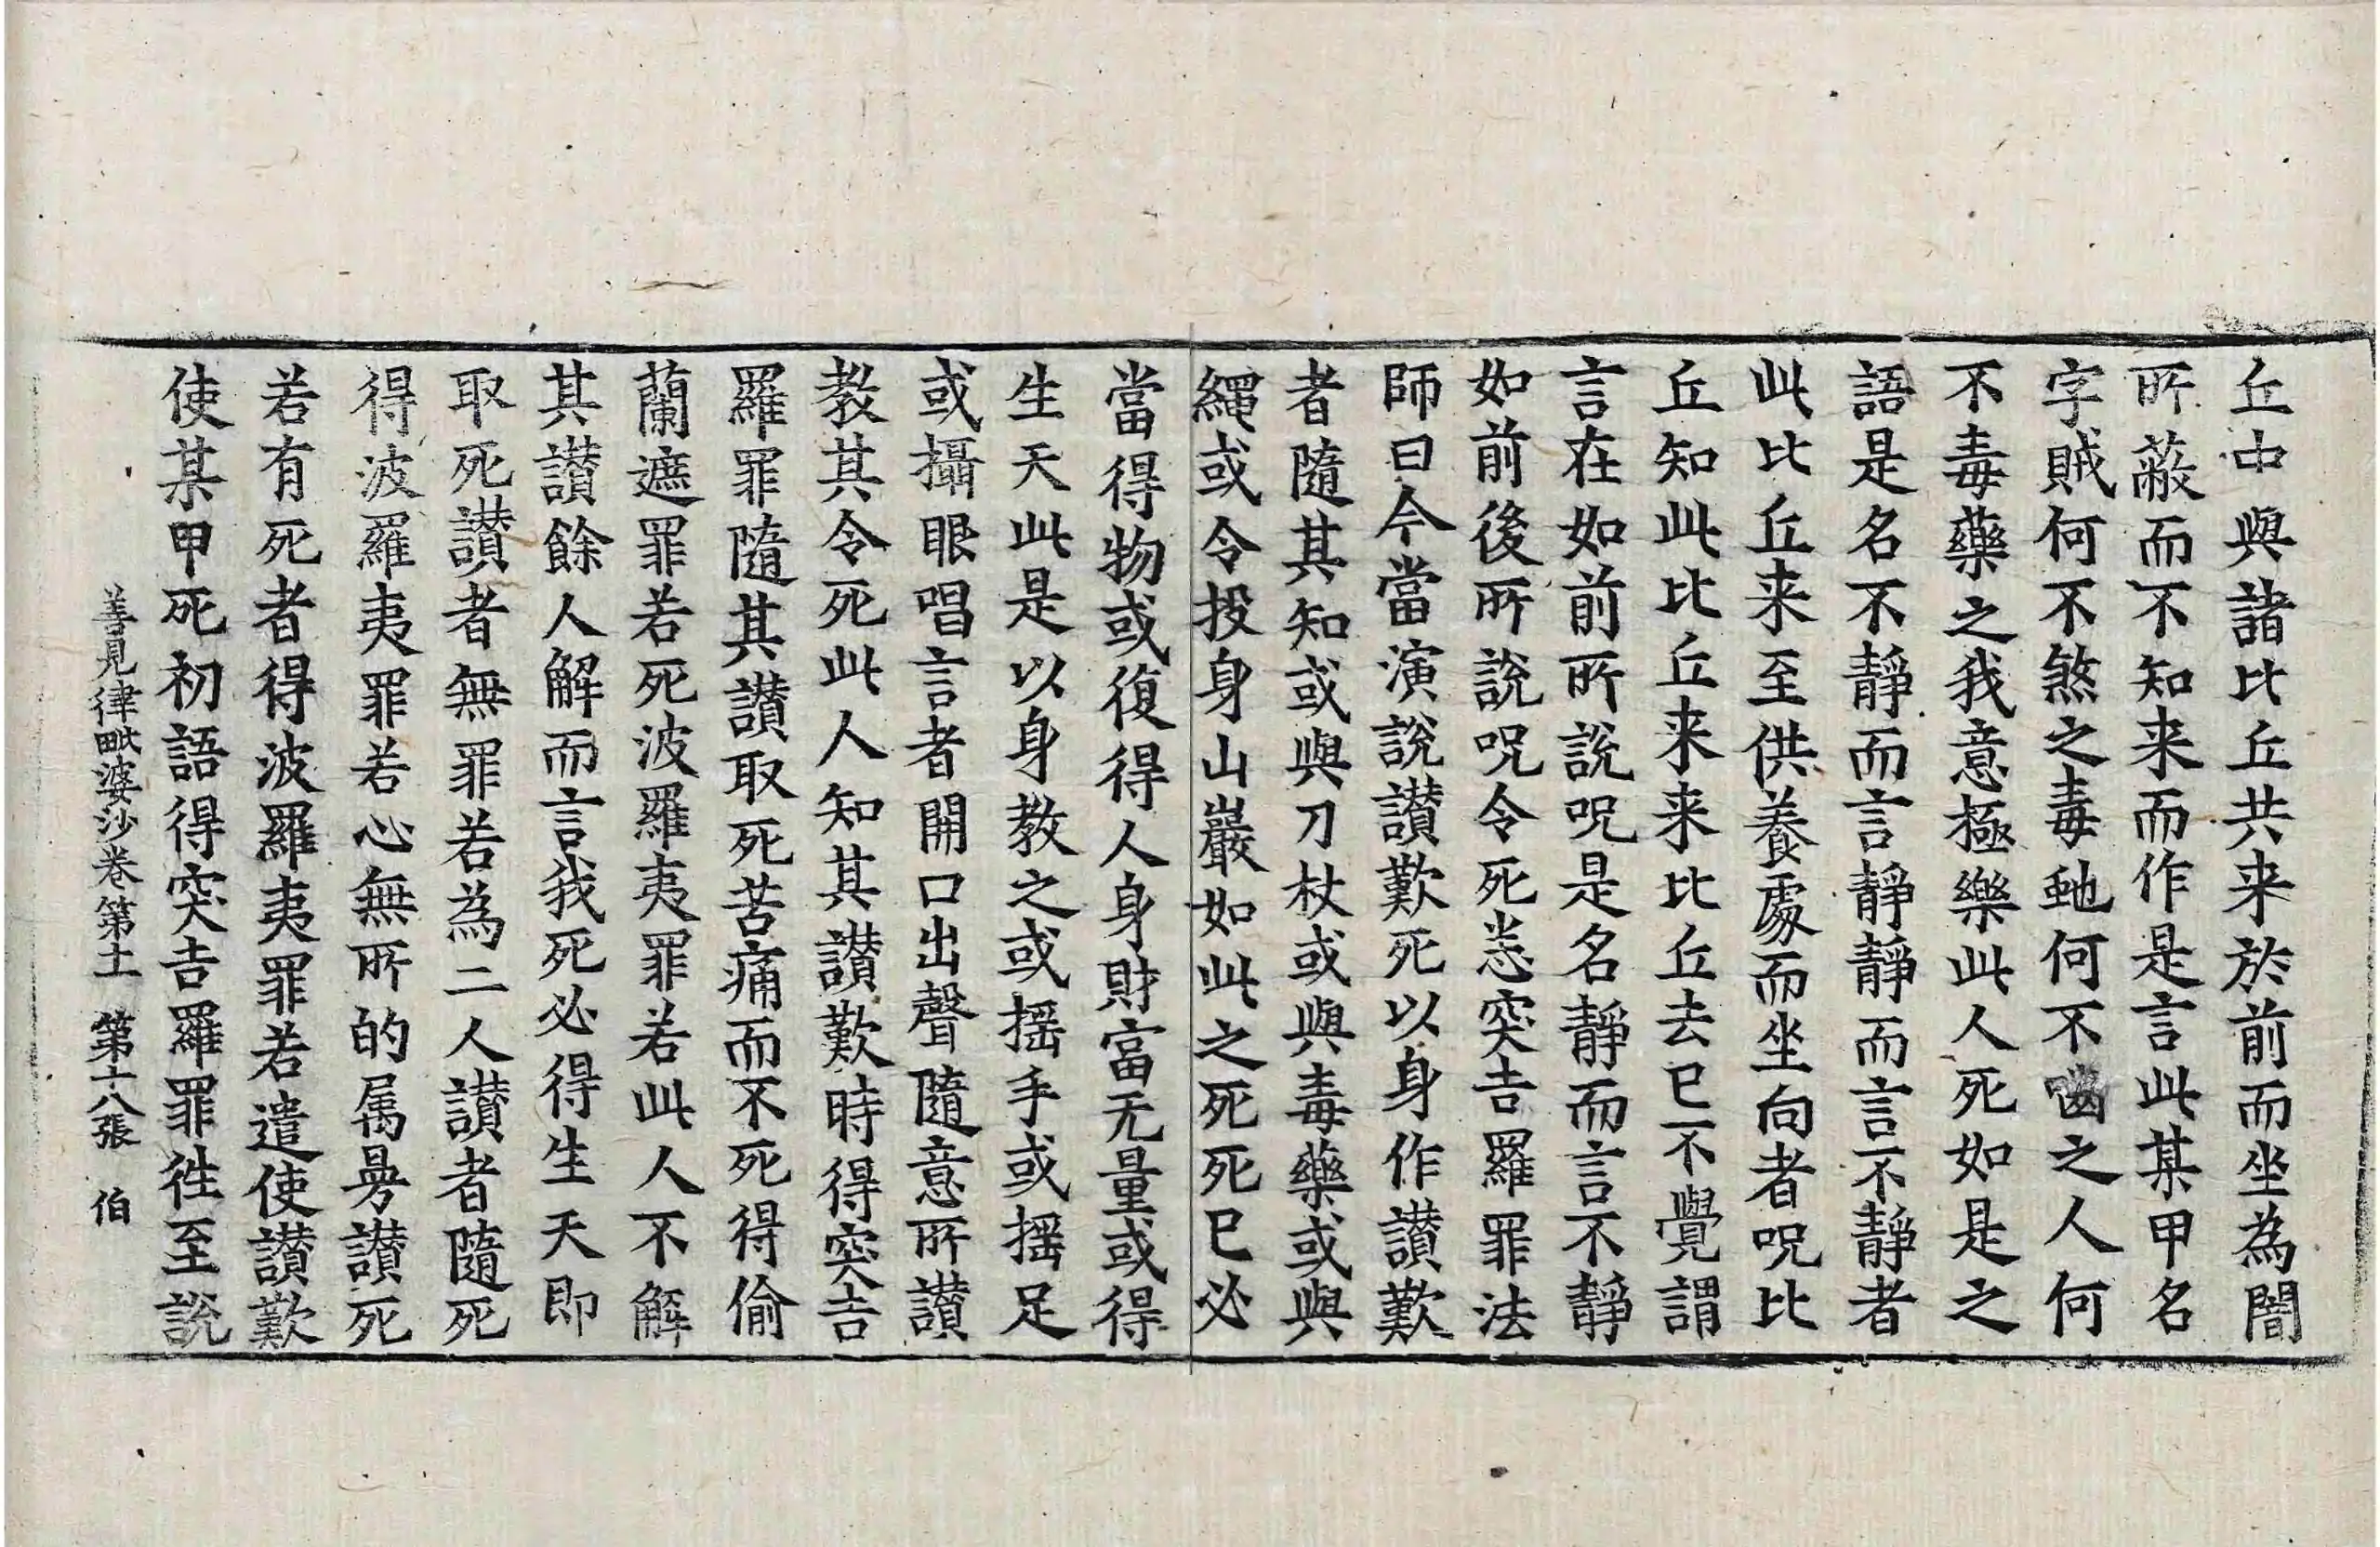 丘中與諸比丘共来於前而坐為闇
所蔽而不知来而作是言此某甲名
字賊何不煞之毒虵何不嚙之人何
不毒藥之我意極樂此人死如是之
語是名不靜而言靜靜而言不靜者
此比丘来至供養處而坐向者呪比
丘知此比丘来来比丘去已不覺謂
言在如前所説呪是名靜而言不靜
如前後所説呪令死悉突吉羅罪法
師曰今當演説讃歎死以身作讃歎
者隨其知或與刀杖或與毒藥或與
繩或令投身山巖如此之死死已必
當得物或復得人身財富无量或得
生天此是以身教之或揺手或揺足
或攝眼唱言者開口出聲隨意所讃
教其令死此人知其讃歎時得突吉
羅罪隨其讃取死苦痛而不死得偷
蘭遮罪若死波羅夷罪若此人不解
其讃餘人解而言我死必得生天即
取死讃者無罪若為二人讃者隨死
得波羅夷罪若心無所的属㫄讃死
若有死者得波羅夷罪若遣使讃歎
使某甲死初語得突吉羅罪徃至説
善見律毗婆沙卷第十一 第十八張 伯